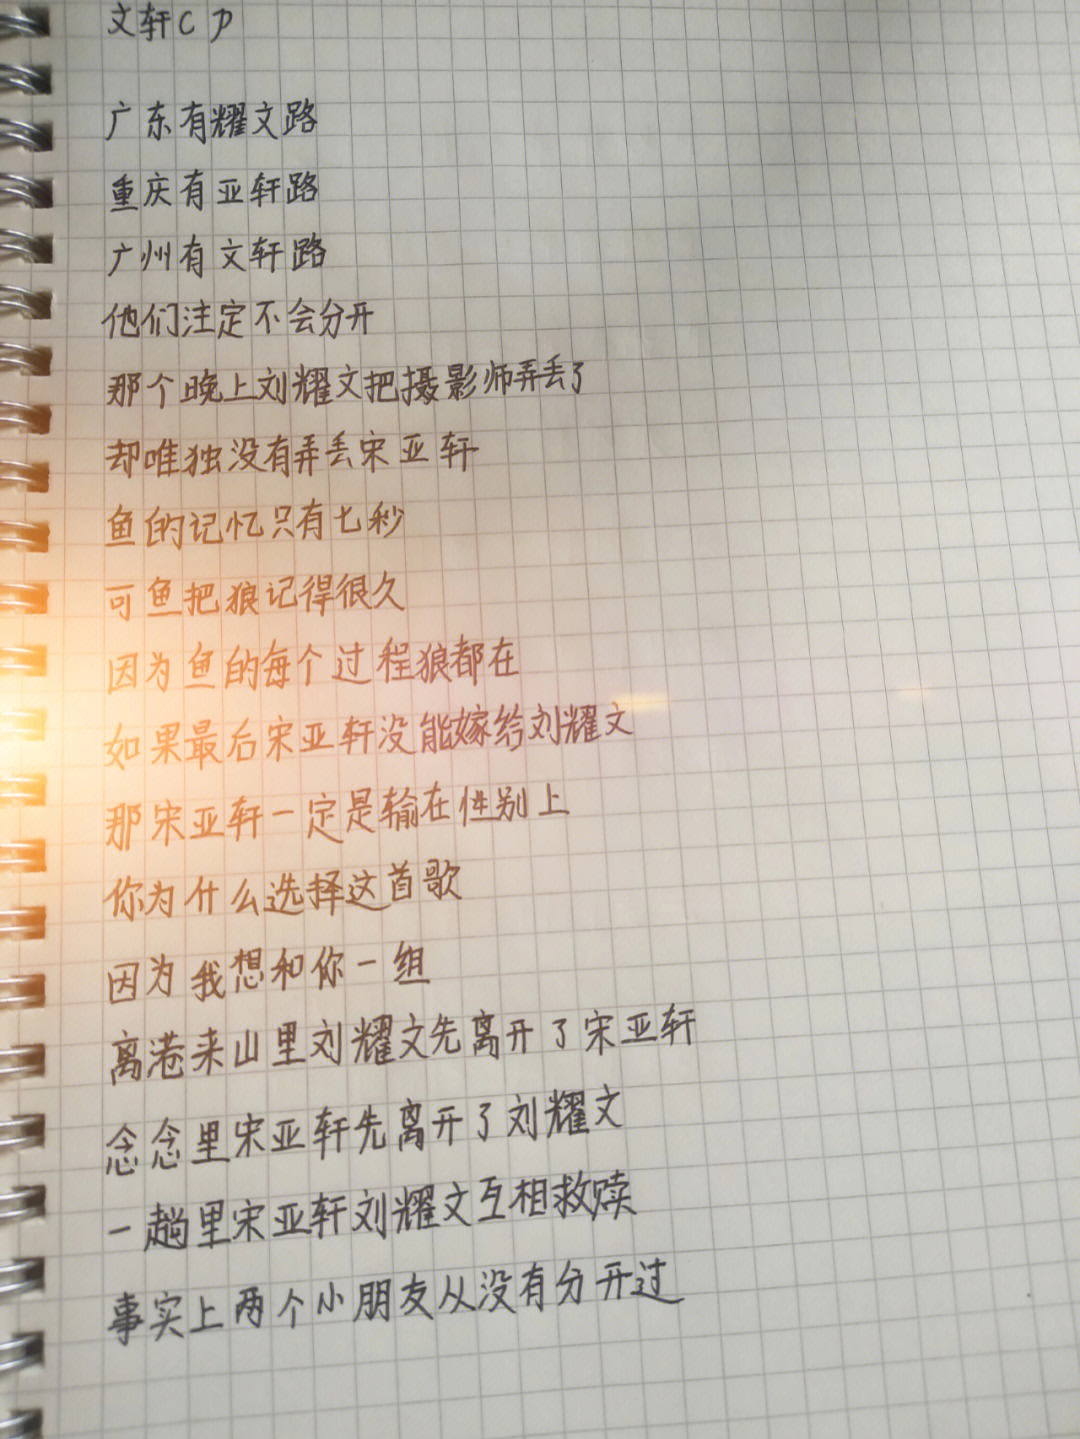 文轩CP
广东有耀文路
重庆有亚轩路
广州有文轩路
他们注定不会分开
那个晚上刘耀文把摄影师弄丢了
却唯独没有弄丢宋亚轩
鱼的记忆只有七秒
可鱼把狼记得很久
因为鱼的每个过程狼都在
如果最后宋亚轩没能嫁给刘耀文
那宋亚轩一定是输在性别上
你为什么选择这首歌
因为我想和你一组
离港来山里刘耀文先离开了宋亚轩
念念里宋亚轩先离开了刘耀文
一趟里宋亚轩刘耀文互相救赎
事实上两个小朋友从没有分开过